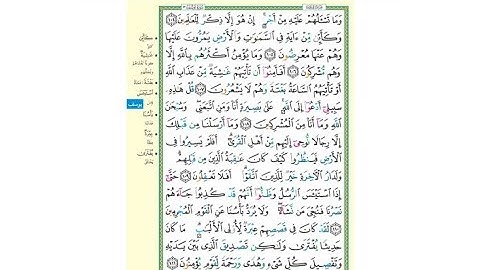 وَمَا تَسْـَٔلُهُمْ عَلَيْهِ مِنْ أَجْرٍ ۚ إِنْ هُوَ إِلَّا ذِكْرٌ لِّلْعَٰلَمِينَ ١٠٤
وَكَأَيِّن مِّنْ ءَايَةٍ فِى ٱلسَّمَٰوَٰتِ وَٱلْأَرْضِ يَمُرُّونَ عَلَيْهَا
وَهُمْ عَنْهَا مُعْرِضُونَ ١٠٥ وَمَا يُؤْمِنُ أَكْثَرُهُم بِٱللَّهِ إِلَّا
وَهُم مُّشْرِكُونَ ١٠٦ أَفَأَمِنُوٓا۟ أَن تَأْتِيَهُمْ غَٰشِيَةٌ مِّنْ عَذَابِ ٱللَّهِ
أَوْ تَأْتِيَهُمُ ٱلسَّاعَةُ بَغْتَةً وَهُمْ لَا يَشْعُرُونَ ١٠٧ قُلْ هَٰذِهِۦ
سَبِيلِىٓ أَدْعُوٓا۟ إِلَى ٱللَّهِ ۚ عَلَىٰ بَصِيرَةٍ أَنَا۠ وَمَنِ ٱتَّبَعَنِى ۖ وَسُبْحَٰنَ
ٱللَّهِ وَمَآ أَنَا۠ مِنَ ٱلْمُشْرِكِينَ ١٠٨ وَمَآ أَرْسَلْنَا مِن قَبْلِكَ
إِلَّا رِجَالًا نُّوحِىٓ إِلَيْهِم مِّنْ أَهْلِ ٱلْقُرَىٰٓ ۗ أَفَلَمْ يَسِيرُوا۟ فِى
ٱلْأَرْضِ فَيَنظُرُوا۟ كَيْفَ كَانَ عَٰقِبَةُ ٱلَّذِينَ مِن قَبْلِهِمْ ۗ
وَلَدَارُ ٱلْـَٔاخِرَةِ خَيْرٌ لِّلَّذِينَ ٱتَّقَوْا۟ ۗ أَفَلَا تَعْقِلُونَ ١٠٩ حَتَّىٰٓ
إِذَا ٱسْتَيْـَٔسَ ٱلرُّسُلُ وَظَنُّوٓا۟ أَنَّهُمْ قَدْ كُذِبُوا۟ جَآءَهُمْ
نَصْرُنَا فَنُجِّىَ مَن نَّشَآءُ ۖ وَلَا يُرَدُّ بَأْسُنَا عَنِ ٱلْقَوْمِ ٱلْمُجْرِمِينَ
١١٠ لَقَدْ كَانَ فِى قَصَصِهِمْ عِبْرَةٌ لِّأُو۟لِى ٱلْأَلْبَٰبِ ۗ مَا كَانَ
حَدِيثًا يُفْتَرَىٰ وَلَٰكِن تَصْدِيقَ ٱلَّذِى بَيْنَ يَدَيْهِ
وَتَفْصِيلَ كُلِّ شَىْءٍ وَهُدًى وَرَحْمَةً لِّقَوْمٍ يُؤْمِنُونَ ١١١
يوسف